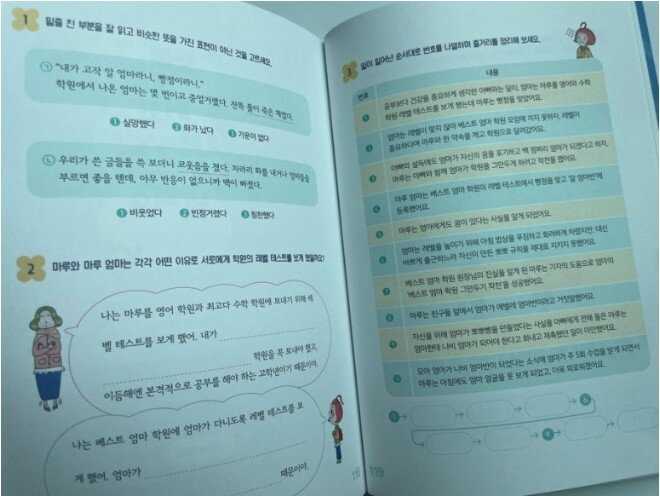 1 밑줄 친 부분을 잘 읽고 비슷한 뜻을 가진 표현이 아닌 것을 고르세요.
㉠ "내가 고작 알 엄마라니, 빵점이라니."
학원에서 나온 엄마는 몇 번이고 중얼거렸다. 잔뜩 풀이 죽은 채였다.
1 실망했다 2 화가 났다 3 기운이 없다
㉡ 우리가 쓴 글들을 쓱 보더니 코웃음을 쳤다. 차라리 화를 내거나 엄마들을
부르면 좋을 텐데, 아무 반응이 없으니까 맥이 빠졌다.
1 비웃었다 2 빈정거렸다 3 칭찬했다
2 마루와 마루 엄마는 각각 어떤 이유로 서로에게 학원의 레벨 테스트를 보게 했을까요?
나는 마루를 영어 학원과 최고다 수학 학원에 보내기 위해 레
벨 테스트를 보게 했어. 내가
학원을 꼭 보내야 했고,
이듬해엔 본격적으로 공부를 해야 하는 고학년이기 때문이야.
나는 베스트 엄마 학원에 엄마가 다니도록 레벨 테스트를 보
게 했어. 엄마가
때문이야.
3 일이 일어난 순서대로 번호를 나열하며 줄거리를 정리해 보세요.
번호 내용
1 공부보다 건강을 중요하게 생각한 아빠와는 달리, 엄마는 마루를 영어와 수학
학원 레벨 테스트를 보게 했는데 마루는 빵점을 맞았어요.
2 엄마는 레벨이 맞지 않아 베스트 엄마 학원 모임에 끼지 못하자, 레벨이
중요하다며 마루와 한 약속을 깨고 학원으로 달려갔어요.
3 아빠의 설득에도 엄마가 자신의 꿈을 포기하고 백 점짜리 엄마가 되겠다고 하자,
마루는 아빠와 함께 엄마가 학원을 그만두게 하려고 작전을 짰어요.
4 마루 엄마는 베스트 엄마 학원의 레벨 테스트에서 빵점을 맞고 '알 엄마반'에
등록했어요.
5 마루는 엄마에게도 꿈이 있다는 사실을 알게 되었어요.
6 엄마는 레벨을 높이기 위해 아침 밥상을 푸짐하고 화려하게 차렸지만, 대신
바쁘게 출근하느라 자신이 만든 뽀뽀 규칙을 제대로 지키지 못했어요.
7 베스트 엄마 학원 원장님의 진실을 알게 된 마루는 기자의 도움으로 엄마의
'베스트 엄마 학원 그만두기 작전'을 성공했어요.
8 마루는 친구들 앞에서 엄마가 애벌레 엄마반이라고 거짓말했어요.
9 자신을 위해 엄마가 뽀뽀뽕을 만들었다는 사실을 아빠에게 전해 들은 마루는
엄마한테 나비 엄마가 되어야 한다고 화내고 재촉했던 일이 미안했어요.
10 모아 엄마가 나비 엄마반이 되었다는 소식에 엄마가 주 5회 수업을 받게 되면서
마루는 아침에도 엄마 얼굴을 못 보게 되었고, 더욱 외로워졌어요.
1 6
4
119